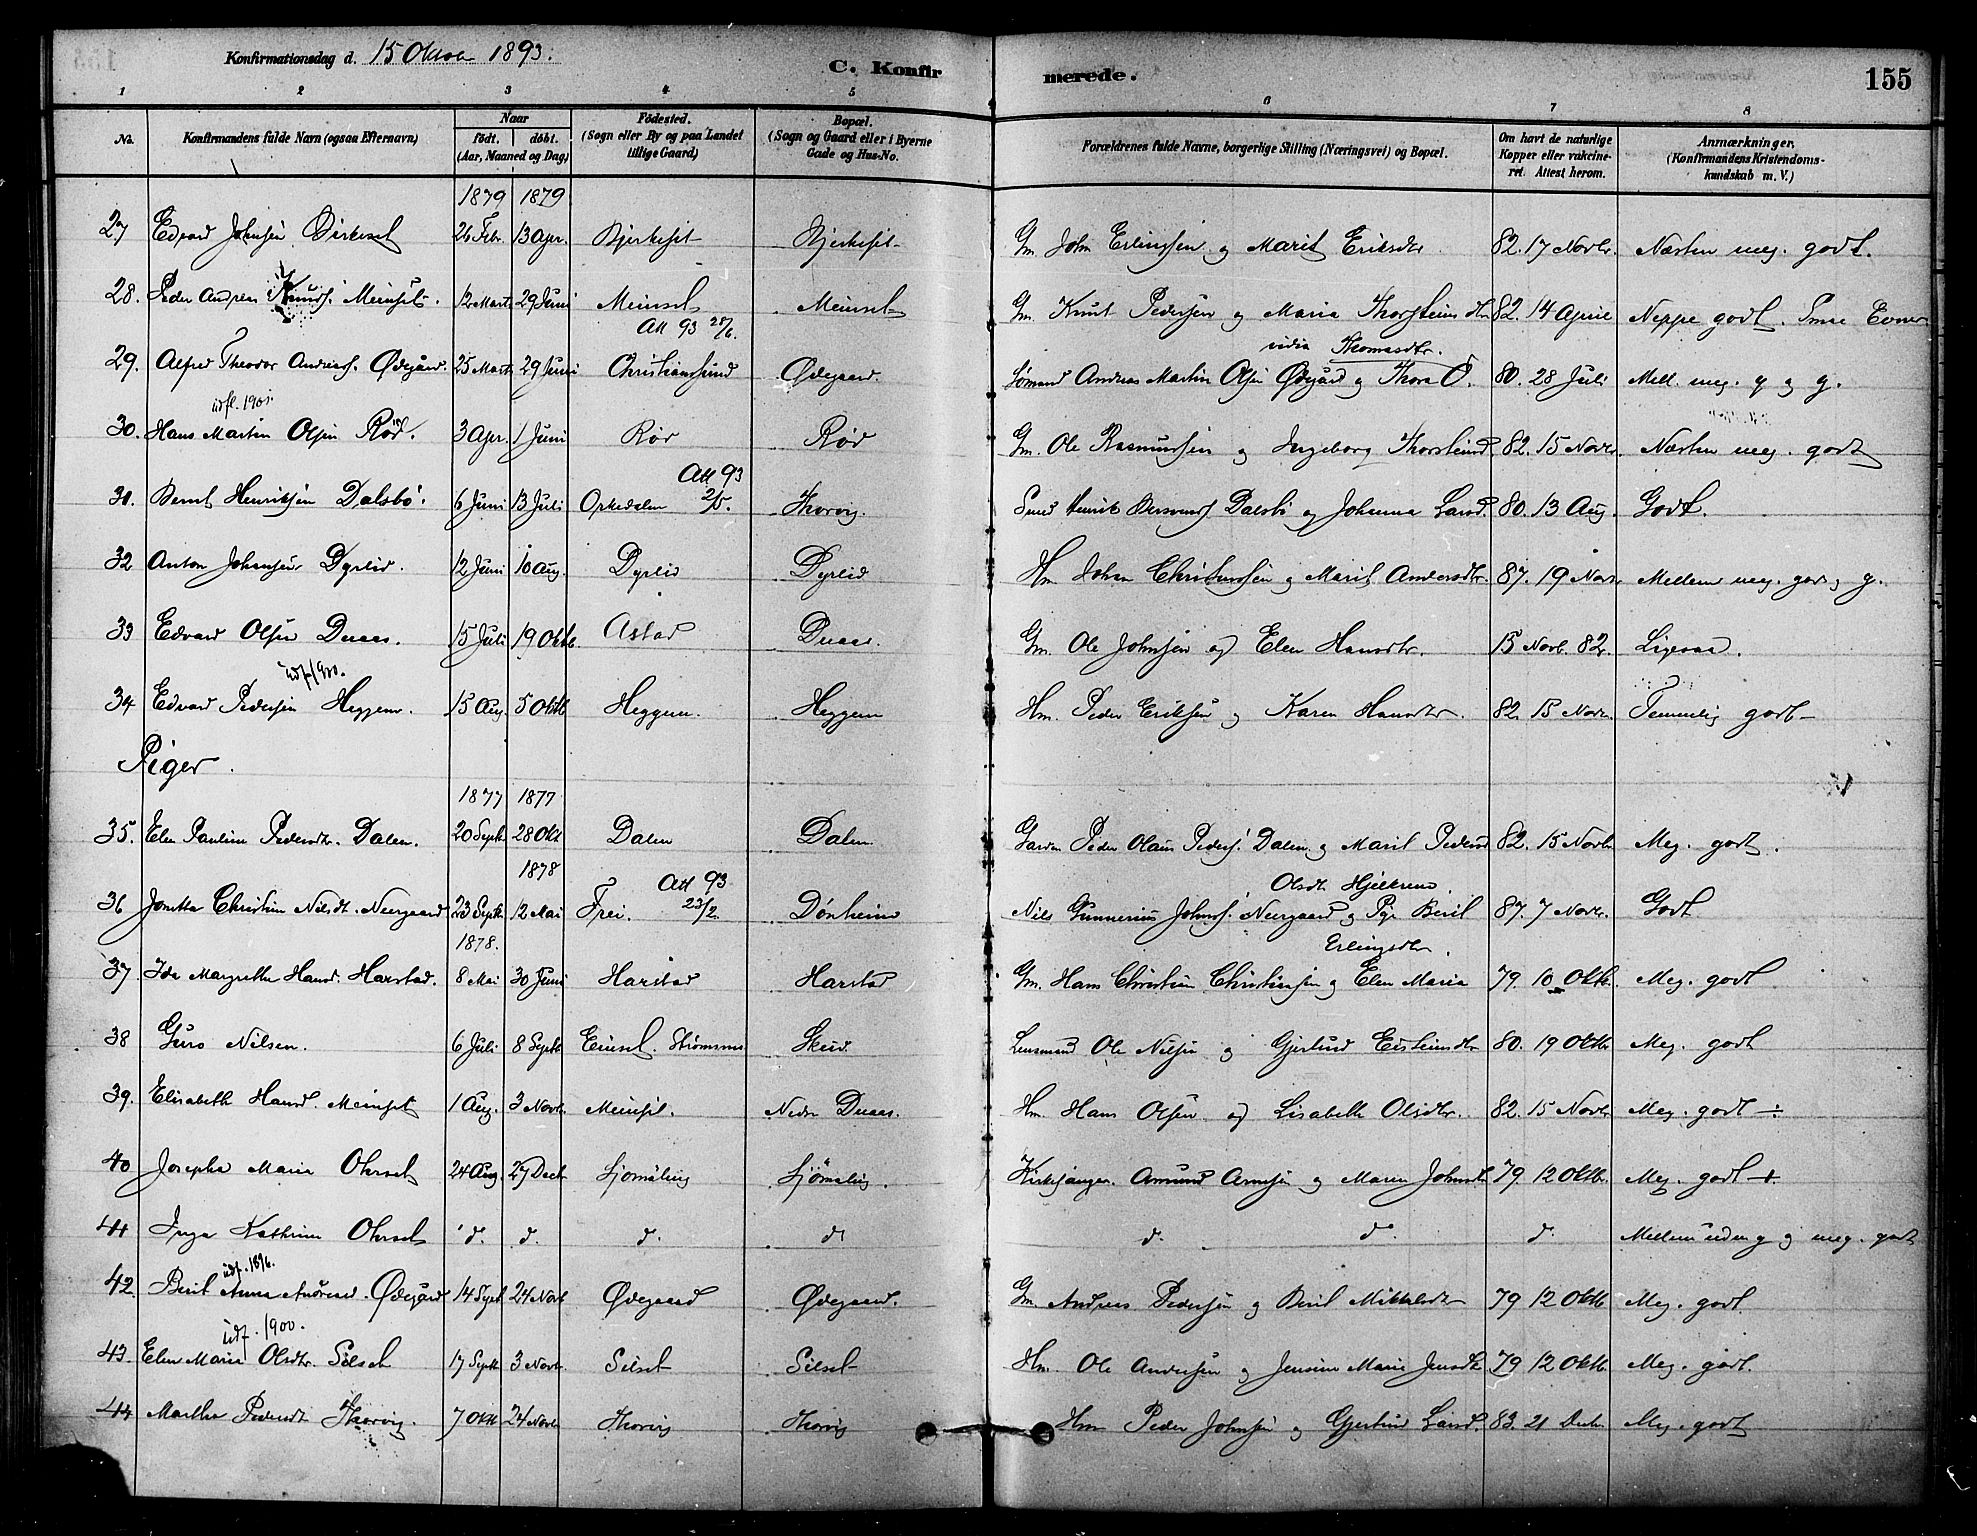 Konfirmationsdag d. 15 Oktober 1893.
C. Konfir merede.
155
1 2 3 4 5 6 7 8
No. Konfirmandens fulde Navn (ogsaa Efternavn) Naar født. døbt. (Aar, Maaned og Dag) Fødested. (Sogn eller By og paa Landet tillige Gaard) Bopæl. (Sogn og Gaard eller i Byerne Gade og Hus-No. Forældrenes fulde Navne, borgerlige Stilling (Næringsvei) og Bopæl. Om havt de naturlige Kopper eller vakcineret. Attest herom. Anmærkninger. (Konfirmandens Kristendomskundskab m. V.)
1879 1879
27 Edvard Johnsen Birkeset 26 Febr. 13 Apr. Bjerkeset Bjerkeset Gm. John Erlingsen og Marit Eriksdtr 82. 17 Novbr. Næsten meg. godt.
28. Peder Andreas Knuds. Meinset 12 Marts 29 Juni Meinset Meinset Gm. Knut Pedersen og Maria Thorsteinsdtr 82. 14 April Neppe godt. Smaa Evner
Att 93 28/6. vidia Thomasdtr.
29. Alfred Theodor Andreass. Ødegård. 25 Marts 29 Juni Christianssund Ødegaard. Sømand Andreas Martin Olsen Ødegård og Thora O. 80. 28 Juli Mell. meg. g og g.
udfl. 1901.
30. Hans Martin Olsen Rød. 3 Apr. 1 Juni Rør Rød Gm. Ole Rasmussen og Ingeborg Thorsteinsd 82. 15 Novbr. Næsten meg. godt
Att 93
31. Bernt Henriksen Dalsbø. 6 Juni 13 Juli Orkedalen 2/5. Thorvig. Smed Henrik Dalsbø og Johanna Larsd. 80. 13 Aug. Godt.
32 Anton Johansen Dyrlid. 12 Juni 10 Aug. Dyrlid Dyrlid Hm Johan Christensen og Marit Andersdtr. 87. 19 Novbr Mellem meg. god og g.
33 Edvard Olsen Duaas. 15 Juli 19 Oktb. Astad Duaas. Gm. Ole Johnsen og Elen Hansdtr. 15 Novb. 82. Ligesaa.
udf 1900.
34 Edvard Pedersen Heggem. 15 Aug. 5 Oktb Heggem. Heggem Hm. Peder Eriksen og Karen Hansdtr. 82. 15 Novbr. Temmelig godt
Piger.
1877 1877
35. Elen Pauline Pedersdtr. Dalen. 20 Septb 28 Okt Dalen Dalen Peder Olaus Peders. Dalen og Marit Pedersd 82. 15 Novbr Meg. godt.
1878 Att 93 Olsdt. Hjelkrem
36 Jonetta Christine Nilsdt. Neergaard 23 Septb 12 Mai Frei. 23/2. Dønheim Nils Gunnerius Johns. Neergaard og Pige Berit 87. 7 Novbr. Godt
1878. Erlingsdtr.
37 Ida Margrethe Hansd. Harstad. 8 Mai 30 Juni Harstad Harstad Gm. Hans Christian Christiansen og Elen Maria 79. 10 Oktb. Meg. godt
38 Guro Nilsen. 6 Juli 8 Septb Strømsnes Skeid. Lensmand Ole Nilsen og Gjertrud Eisteinsdtr 80. 19 Oktb Meg. godt
39. Elisabeth Hansd. Meinset 1 Aug. 3 Novbr. Meinset. Nedre Duaas. Hm. Hans Olsen og Lisabeth Olsdtr. 82. 15 Novbr Meg. godt ÷
40 Josepha Maria Ohrset 24 Aug. 27 Decb Sjømæling Sjømæling. Kirkesanger Amund Arnesen og Maren Johnsdtr 79 12 Oktbr. Meg. godt +.
41 Inga Kathrine Ohrset d. d. d. d d. d. d. Mellem uden g og meg. godt
udf. 1896.
42. Berit Anna Andreasd. Ødegård 14 Septb 24 Novb Ødegaard Ødegaard. Gm Andreas Pedersen og Berit Mikkelsdtr 79 12 Oktb Meg. godt.
udf. 1900.
43. Elen Maria Olsdtr. Silset 17 Septb 3 Novbr. Silset Silset Hm. Ole Andersen og Jensine Marie Jensdtr 79. 12 Oktb. Meg. godt.
44 Martha Pedersdt Thorvig. 7 Oktb 24 Novbr Thorvig Thorvig Hm Peder Johnsen og Gjertrud Larsd. 83. 21 Decbr Meg. godt